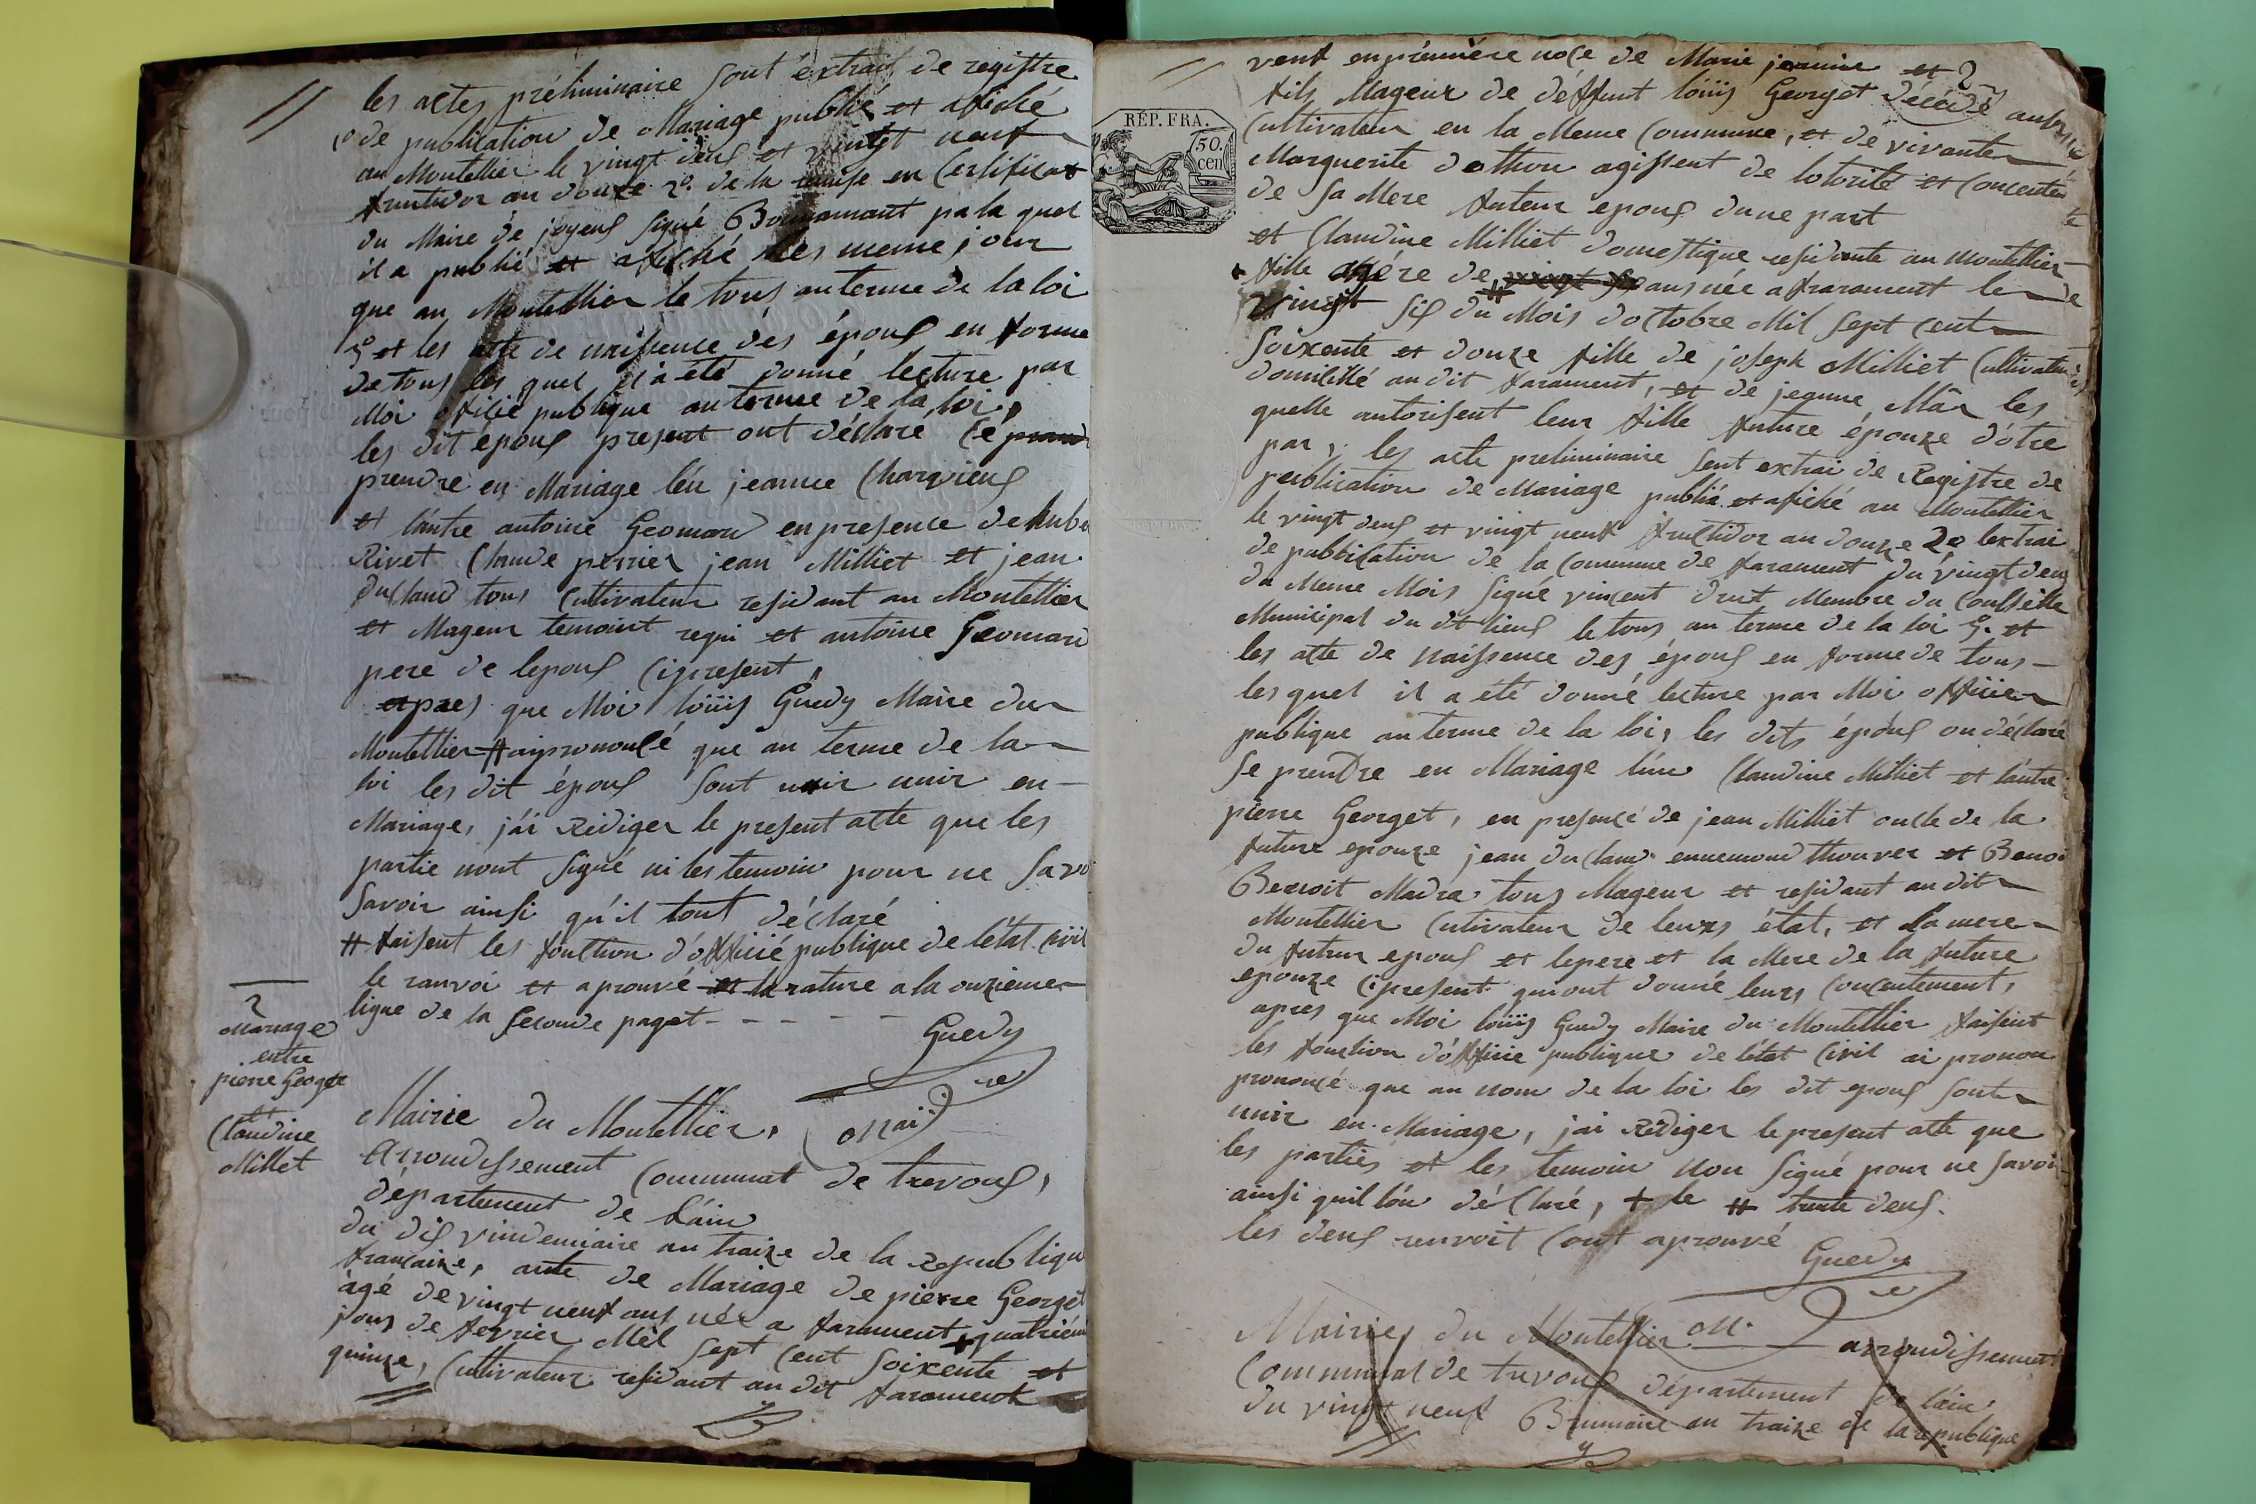 les actes préliminaire sont éxtrait de registre
de publication de Mariage publié et afiché
au Montellier le vingt deus et vingt neuf
fruttidor an douze 2º. de la remise en Certificat
du Maire de joyeus signé Bonnamant pa la quel
il a publié et afiché les meme jour
que au Montellier le tous au terme de la loi
et les atte de naissence dès épous en forme
de tous les quel il a été donné lecture par
Moi oficié publique au terme de la loi,
les dit epous present ont déclaré Cé
prendre en Mariage lún jeanne Charvieus
et lántre antoine Geomard en presence de
Rivet Claude perrier jean Milliet et jean
duclaud tous Cultivateur residant au Montellier
et Mageur temoint requi et antoine Geomard
pere de lepous cipresent,
apres que Moi loüis Guedy Maire du
Montellier # aiprononsé que au terme de la
loi les dit épous sont unir en
Mariage, j'ái Rédiger le present atte que les
partie nont signé ni les temoin pour ne Savoi
Savoir ainsi qu'il lont déclaré
# faisent les fonction d'officié publique de létat civil
le ranvoi et aprouvé et la rature a la onzieme
ligne de la seconde paget - - - - -
Guedy
re
Mai
2
Mariage
entre
pierre Georget
et
Claudine
Millet
Mairie du Montellier,
Arrondissement Communat de trevous,
département de Láin
du dis vindemiaire an traize de la republique
francaize, acte de Mariage de pierre Georget
àgé de vingt neuf ans néz a farament + quatriéme
jours de fevrier Mil sept Cent soixente et
quinze, Cultivateur residant au dit farament
RÉP. FRA.
50.
cen
veuf en prémière noce de Marie jeanine et
fils Mageur de déffunt loüis Georget décédé
Cultivateur en la Meme Commune, et de vivante
Marguerite dathon agissent de lotorité et Concentem
de Sa Mere futeur epous dune part
et Claudine Milliet domestique residente au Montellier
fille de ans née a frarament le
vingt sis du Mois doctobre Mil sept Cent
Soixente et douze fille de joseph Milliet Cultivateur
domicillé au dit farament, et de jeanne Mân les
quelle autorisent leur fille future épouze d'ôtre
par, les acte preliminaire sent extrai de Registre de
peublication de Mariage publié et afiché au Montellier
le vingt deus et vingt neuf fructidor an douze 2º lextrai
de pubbication de la Commune de farament du vingt deus
du Meme Mois signé vincent drut Membre du Consseille
Municipal du dt lieus le tous au terme de la loi et
les atte de naissence des épous en forme de tous
les quel il a été donné lecture par Moi officier
publique au terme de la loi, les dits épous on déclaré
Se prendre en Mariage lún Claudine Milliet et lántre
pierre Georget, en presence de jean Milliet oncle de la
future epouze jean duclaud ennemond thouver et Benoi
Benoit Madra tous Mageur et residant au dit
Montellier Cutivateur de leurs état, et la mere
du futeur epous et lepere et la Mere de la future
epouze cipresent quiont donné leurs Concentement,
apres que Moi loüis Guedy Maire du Montellier faisent
les fonction d'officié publique de létat Civil ai pronon
prononsé que au nom de la loi les dit epous sont
unir en Mariage, jai Rédiger le present atte que
les parties et les temoin non signé pour ne savoi
ainsi quil lón déclaré, + le # trente deus.
les deus renvoit Cont aprouvé
Guedy
re
M.
Mairie du Montellier arrondissement
Communal de trevous département de láin
du vingt neuf Brumaire an traize de la republique